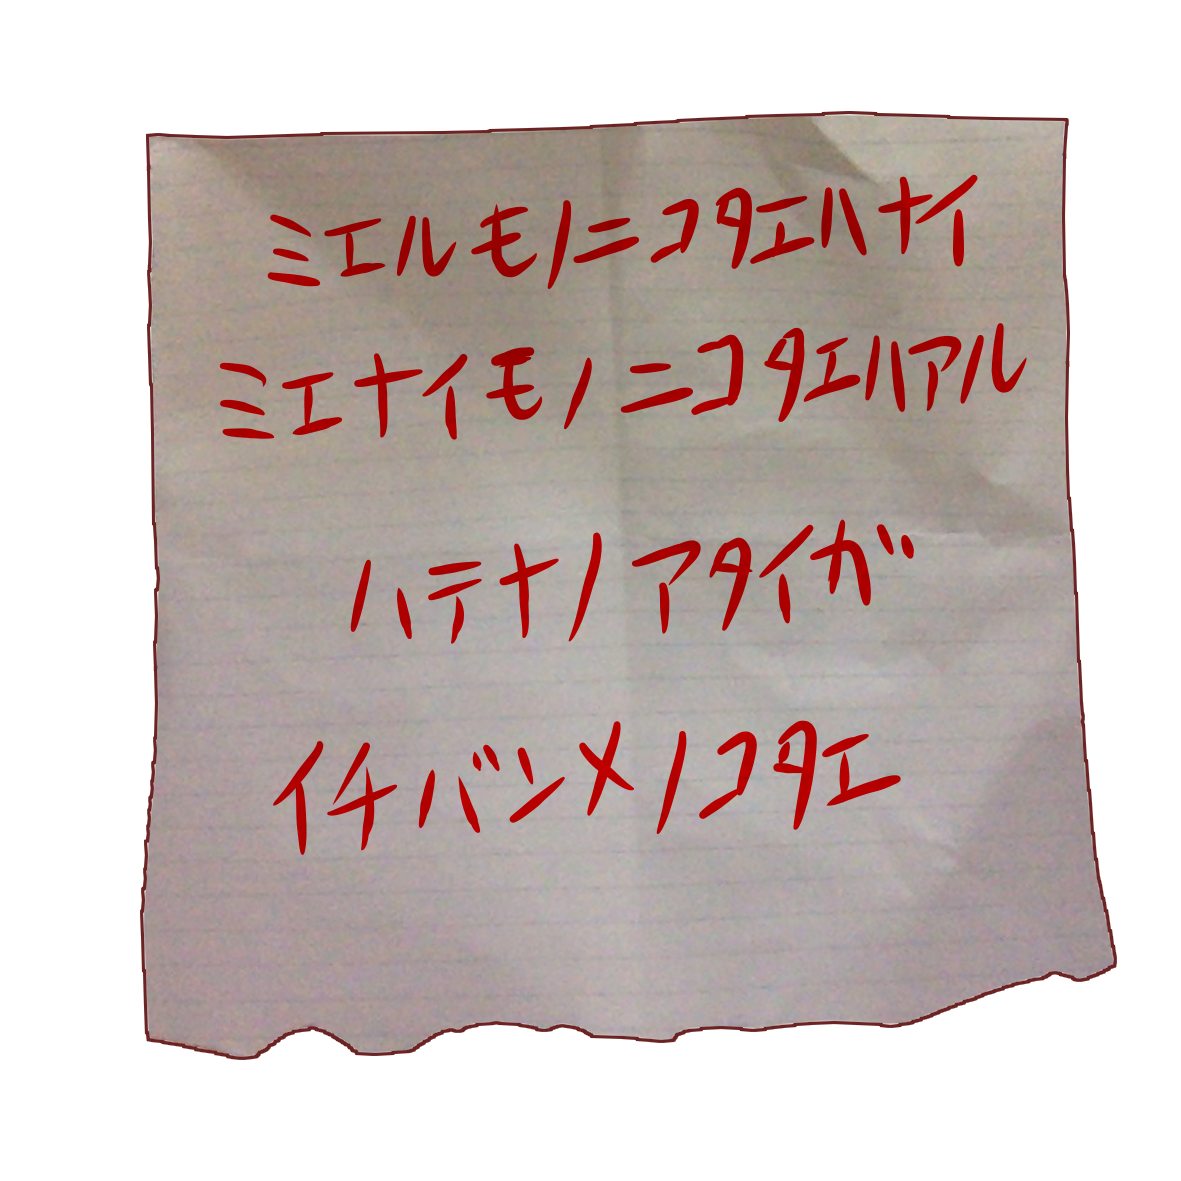 ミエルモノニコタエハナイ
ミエナイモノニコタエハアル
ハテナノアタイガ
イチバンメノコタエ